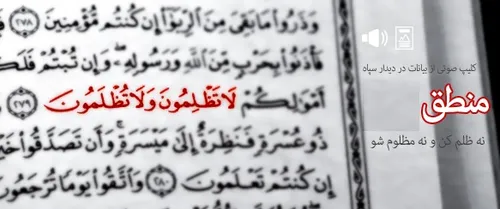 وَذَرُوا مَا بَقِيَ مِنَ الرِّبَوٰٓا إِن كُنتُم مُّؤْمِنِينَ ﴿٢٧٨﴾
فَأْذَنُوا بِحَرْبٍ مِّنَ اللَّهِ وَرَسُولِهِ وَإِن تُبْتُمْ فَلَكُ
أَمْوَالِكُمْ لَا تَظْلِمُونَ وَلَا تُظْلَمُونَ ﴿٢٧٩﴾
ذُو عُسْرَةٍ فَنَظِرَةٌ إِلَىٰ مَيْسَرَةٍ وَأَن تَصَدَّقُوا خَيْ
إِن كُنتُمْ تَعْلَمُونَ ﴿٢٨٠﴾ وَاتَّقُوا يَوْمًا تُرْجَعُونَ
کلیپ صوتی از بیانات در دیدار سپاه
منطق
نه ظلم کن و نه مظلوم شو